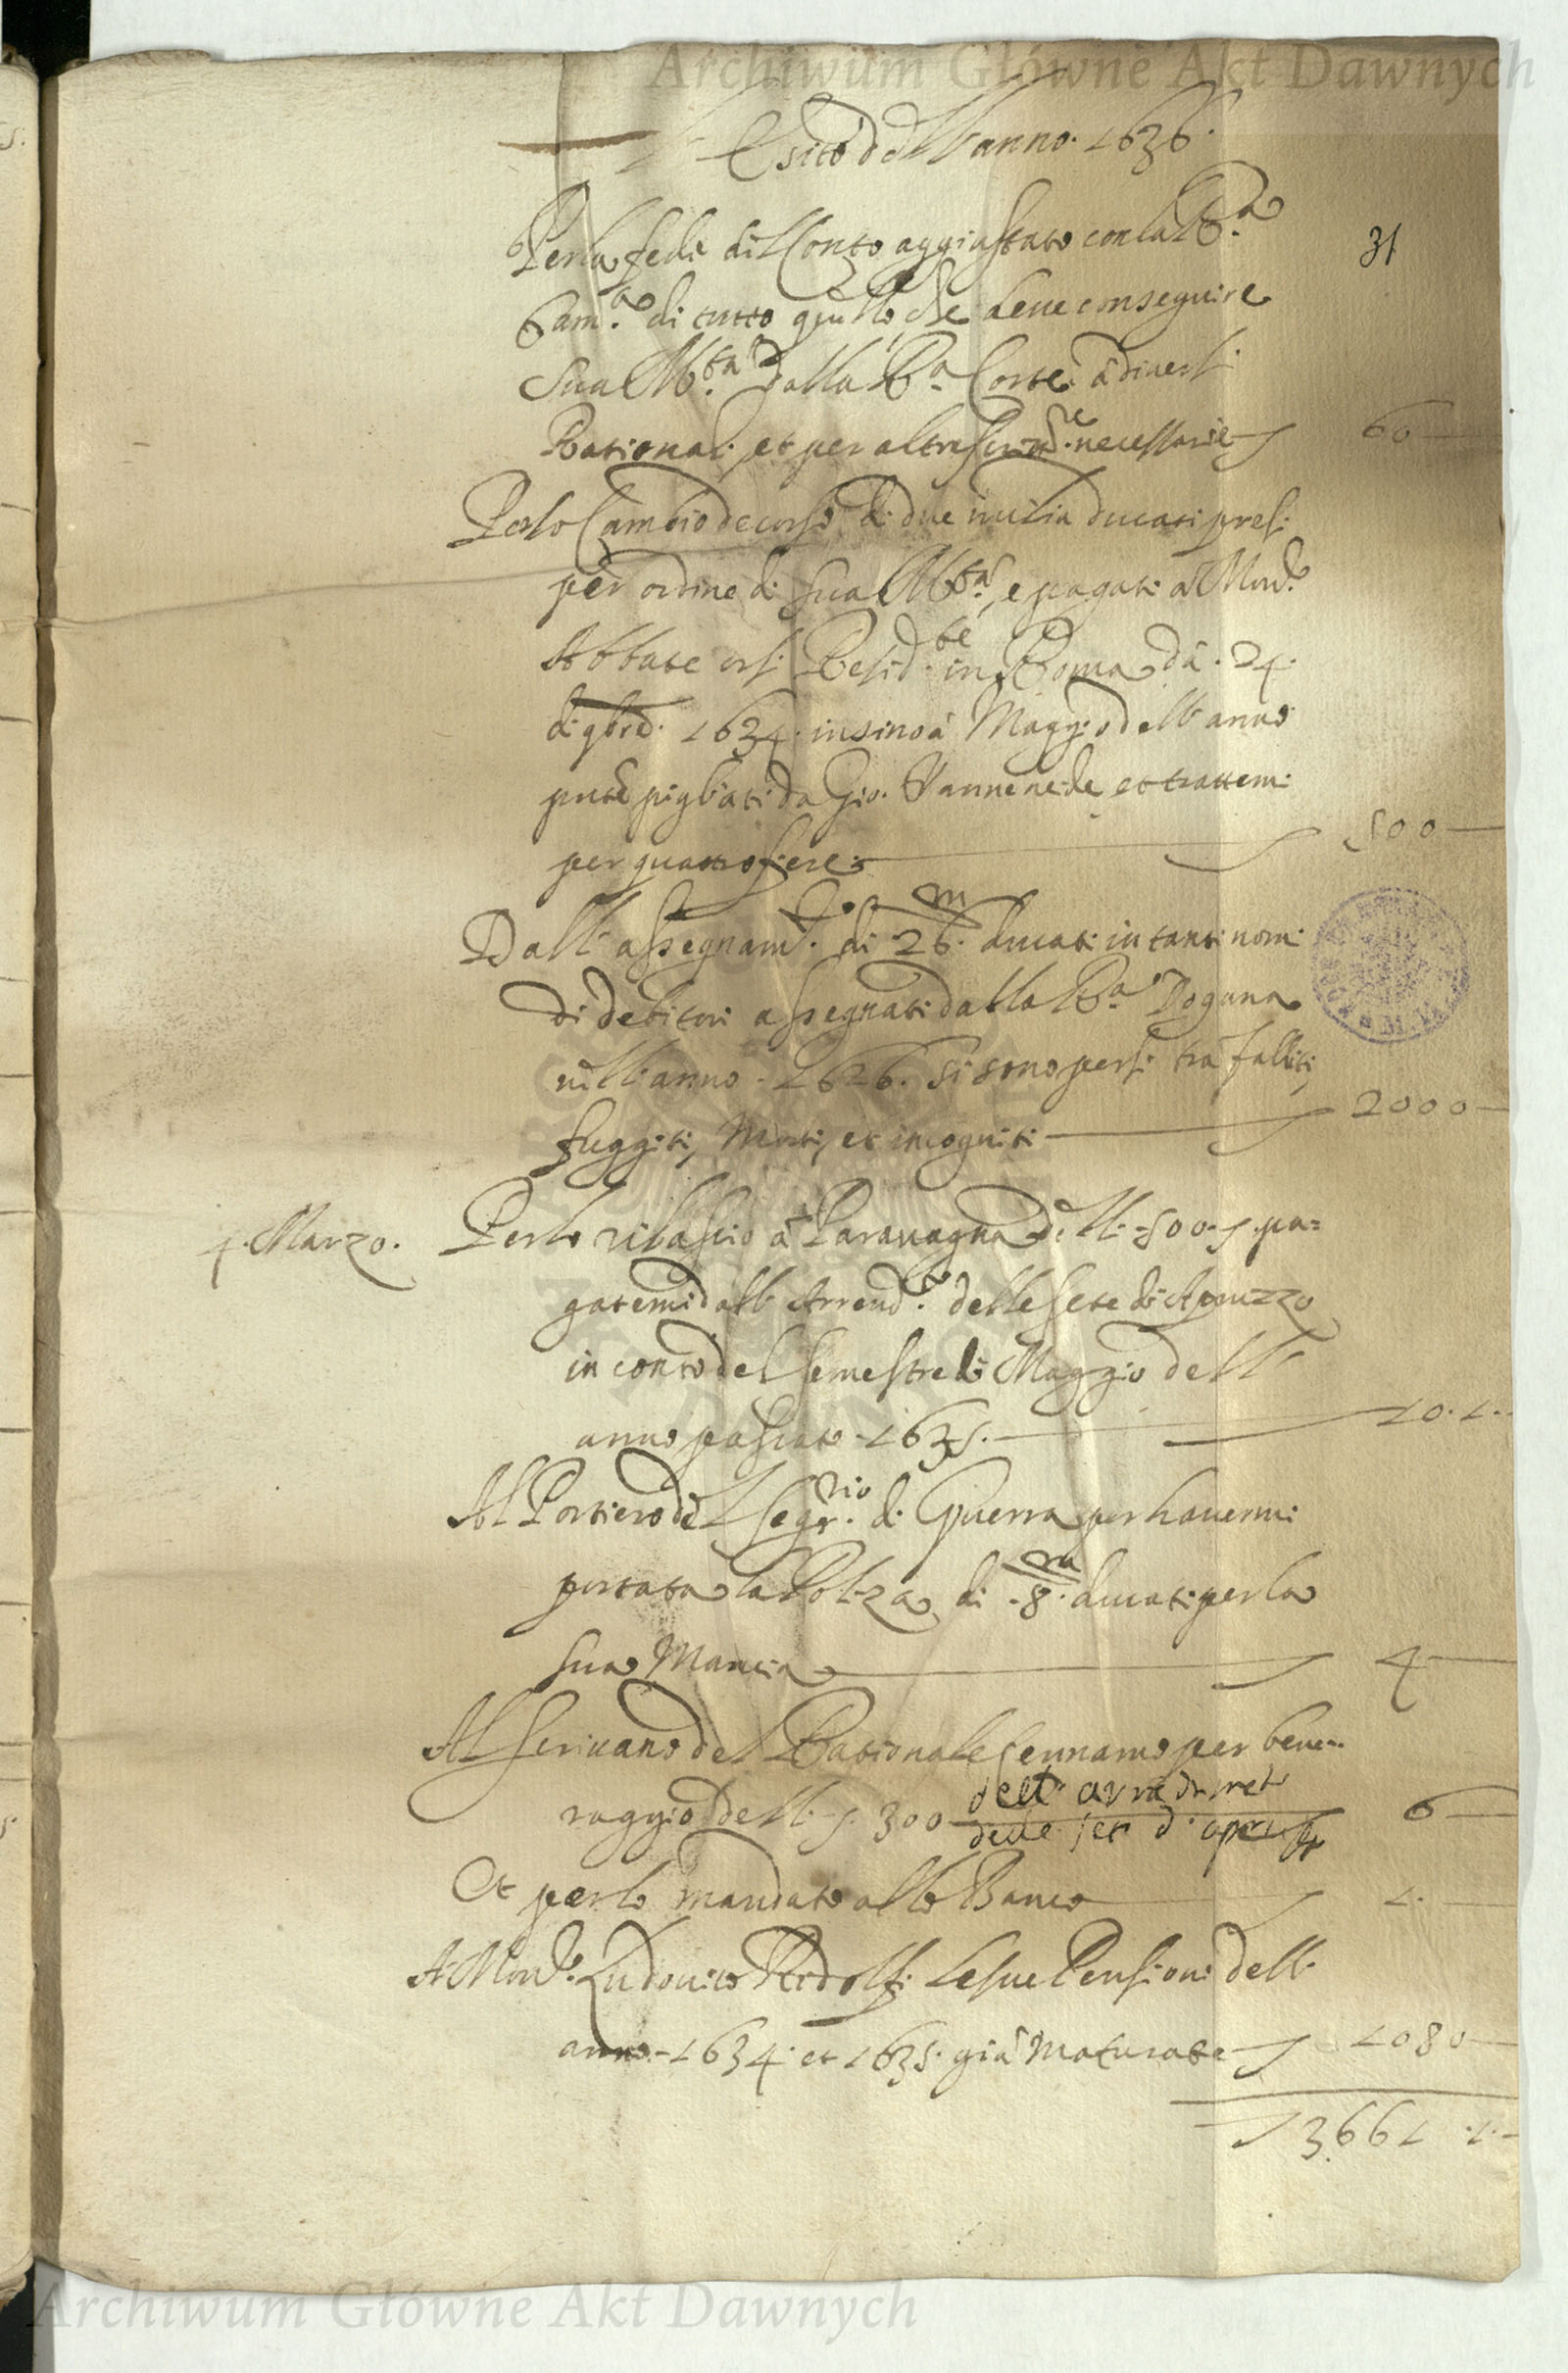 Archiwum Główne Akt Dawnych
Esito dell' anno. 1636.
31
Per la fede dil Conto aggiustato con la R.a
Cam.a di tutto quello che deue conseguire
Sua M.tà dalla R.a Corte à diuersi
Rational: et per altre necessarie 60
Per lo Cambio decorso di due milia ducati presi
per ordine di Sua M.tà, e pagati à Mons.r
Abbate orsi Resid.te in Roma dà 24.
di 9bre. 1634. insino à Maggio dell' anno
pnte pigliati da Gio. et
per quattro fiere 500
Dall' assegnam.to di 26.m ducati in tanti nomi
di debitori assegnati dalla R.a Dogana
nell' anno 1626. si sono persi trà falliti,
fuggiti, Morti, et incogniti 2000
4. Marzo. Per lo rilascio à Parauagna delli 500 pa=
gatemi dall' Arrend.re delle sete di Apruzzo
in conto del semestre di Maggio dell'
anno passato 1635. 10.1.
Al Portiero del Segr.rio di Guerra per hauermi
portata la Poliza di 8.m ducati per la
sua Mancia 4
Al scriuano del Rationale Cennamo per beue-
raggio delli 300 dell'
delle set d' 6
Et per lo mandato allo Banco 1.
A Mons.r Ludouico Ridolfi le sue Pensioni dell'
anno 1634. et 1635. già Maturate 1080
3661.1.
Archiwum Główne Akt Dawnych